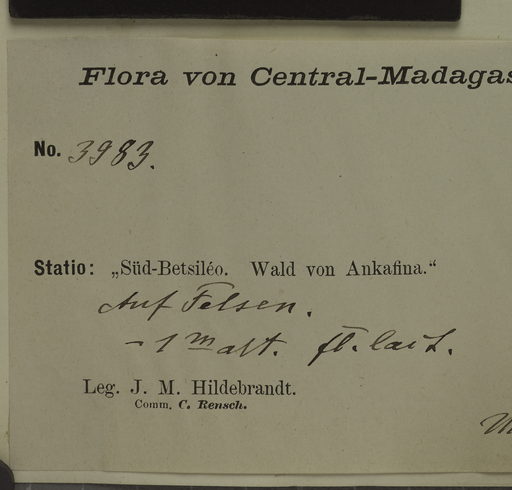 Flora von Central-Madagas
No. 3983.
Statio: „Süd-Betsiléo. Wald von Ankafina.“
Auf Felsen.
– 1 m alt. fl. lait.
Leg. J. M. Hildebrandt.
Comm. C. Rensch.